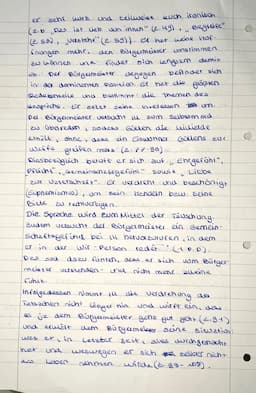 er sehr wirr und teilweise auch ironisch
(z.B. „Das ist lieb von Ihnen" (Z. 49), „Begreife"
(Z. 53), „Verstehe" (Z. 55)). Er hat keine Hof-
fnungen mehr, den Bürgermeister umstimmen
zu können und findet sich langsam damit
ab. Der Bürgermeister dagegen befindet sich
in der dominanten Position. Er hat die größten
Redeanteile und bestimmt die Themen des
Gesprächs. Er setzt seine Interessen um.
Der Bürgermeister versucht Ill zum Selbstmord
zu überreden, sodass Güllen die Milliarde
erhält, ohne, dass die Einwohner Güllens zur
Waffe greifen müssen (Z. 77-80).
Diesbezüglich beruft er sich auf „Ehrgefühl",
„Pflicht", „Gemeinschaftsgefühl" sowie „Liebe
zur Vaterstadt". Er verdreht und beschönigt
(Euphemismus), um sein Handeln bzw. seine
Bitte zu rechtfertigen.
Die Sprache wird zum Mittel der Täuschung.
Zudem versucht der Bürgermeister ein Gemein-
schaftsgefühl bei Ill hervorzurufen, indem
er in der Wir-Person redet
Das soll dazu führen, dass er sich vom Bürger-
meister verstanden und nicht mehr alleine
fühlt.
Infolgedessen nimmt Ill die Verdrehung der
Tatsachen nicht länger hin und wirft ein, dass
es ja dem Bürgermeister ganz gut geht (Z. 91)
und erklärt dem Bürgermeister seine Situation:
was er, in letzter Zeit, alles durchgemacht
hat und weswegen er sich selber nicht
das Leben nehmen würde (Z. 93-103).